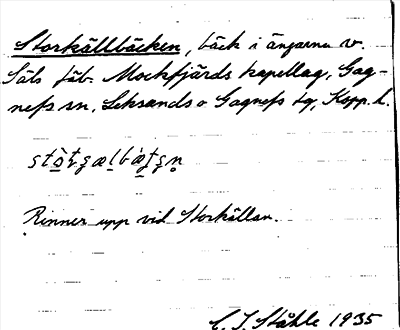 Storkällbäcken, bäck i ängarna v.
Säls fäb. Mockfjärds kapellag, Gag-
nefs sn, Leksands o Gagnefs tg, Kopp. l.
Rinner upp vid Storkällan.
C. I. Ståhle 1935